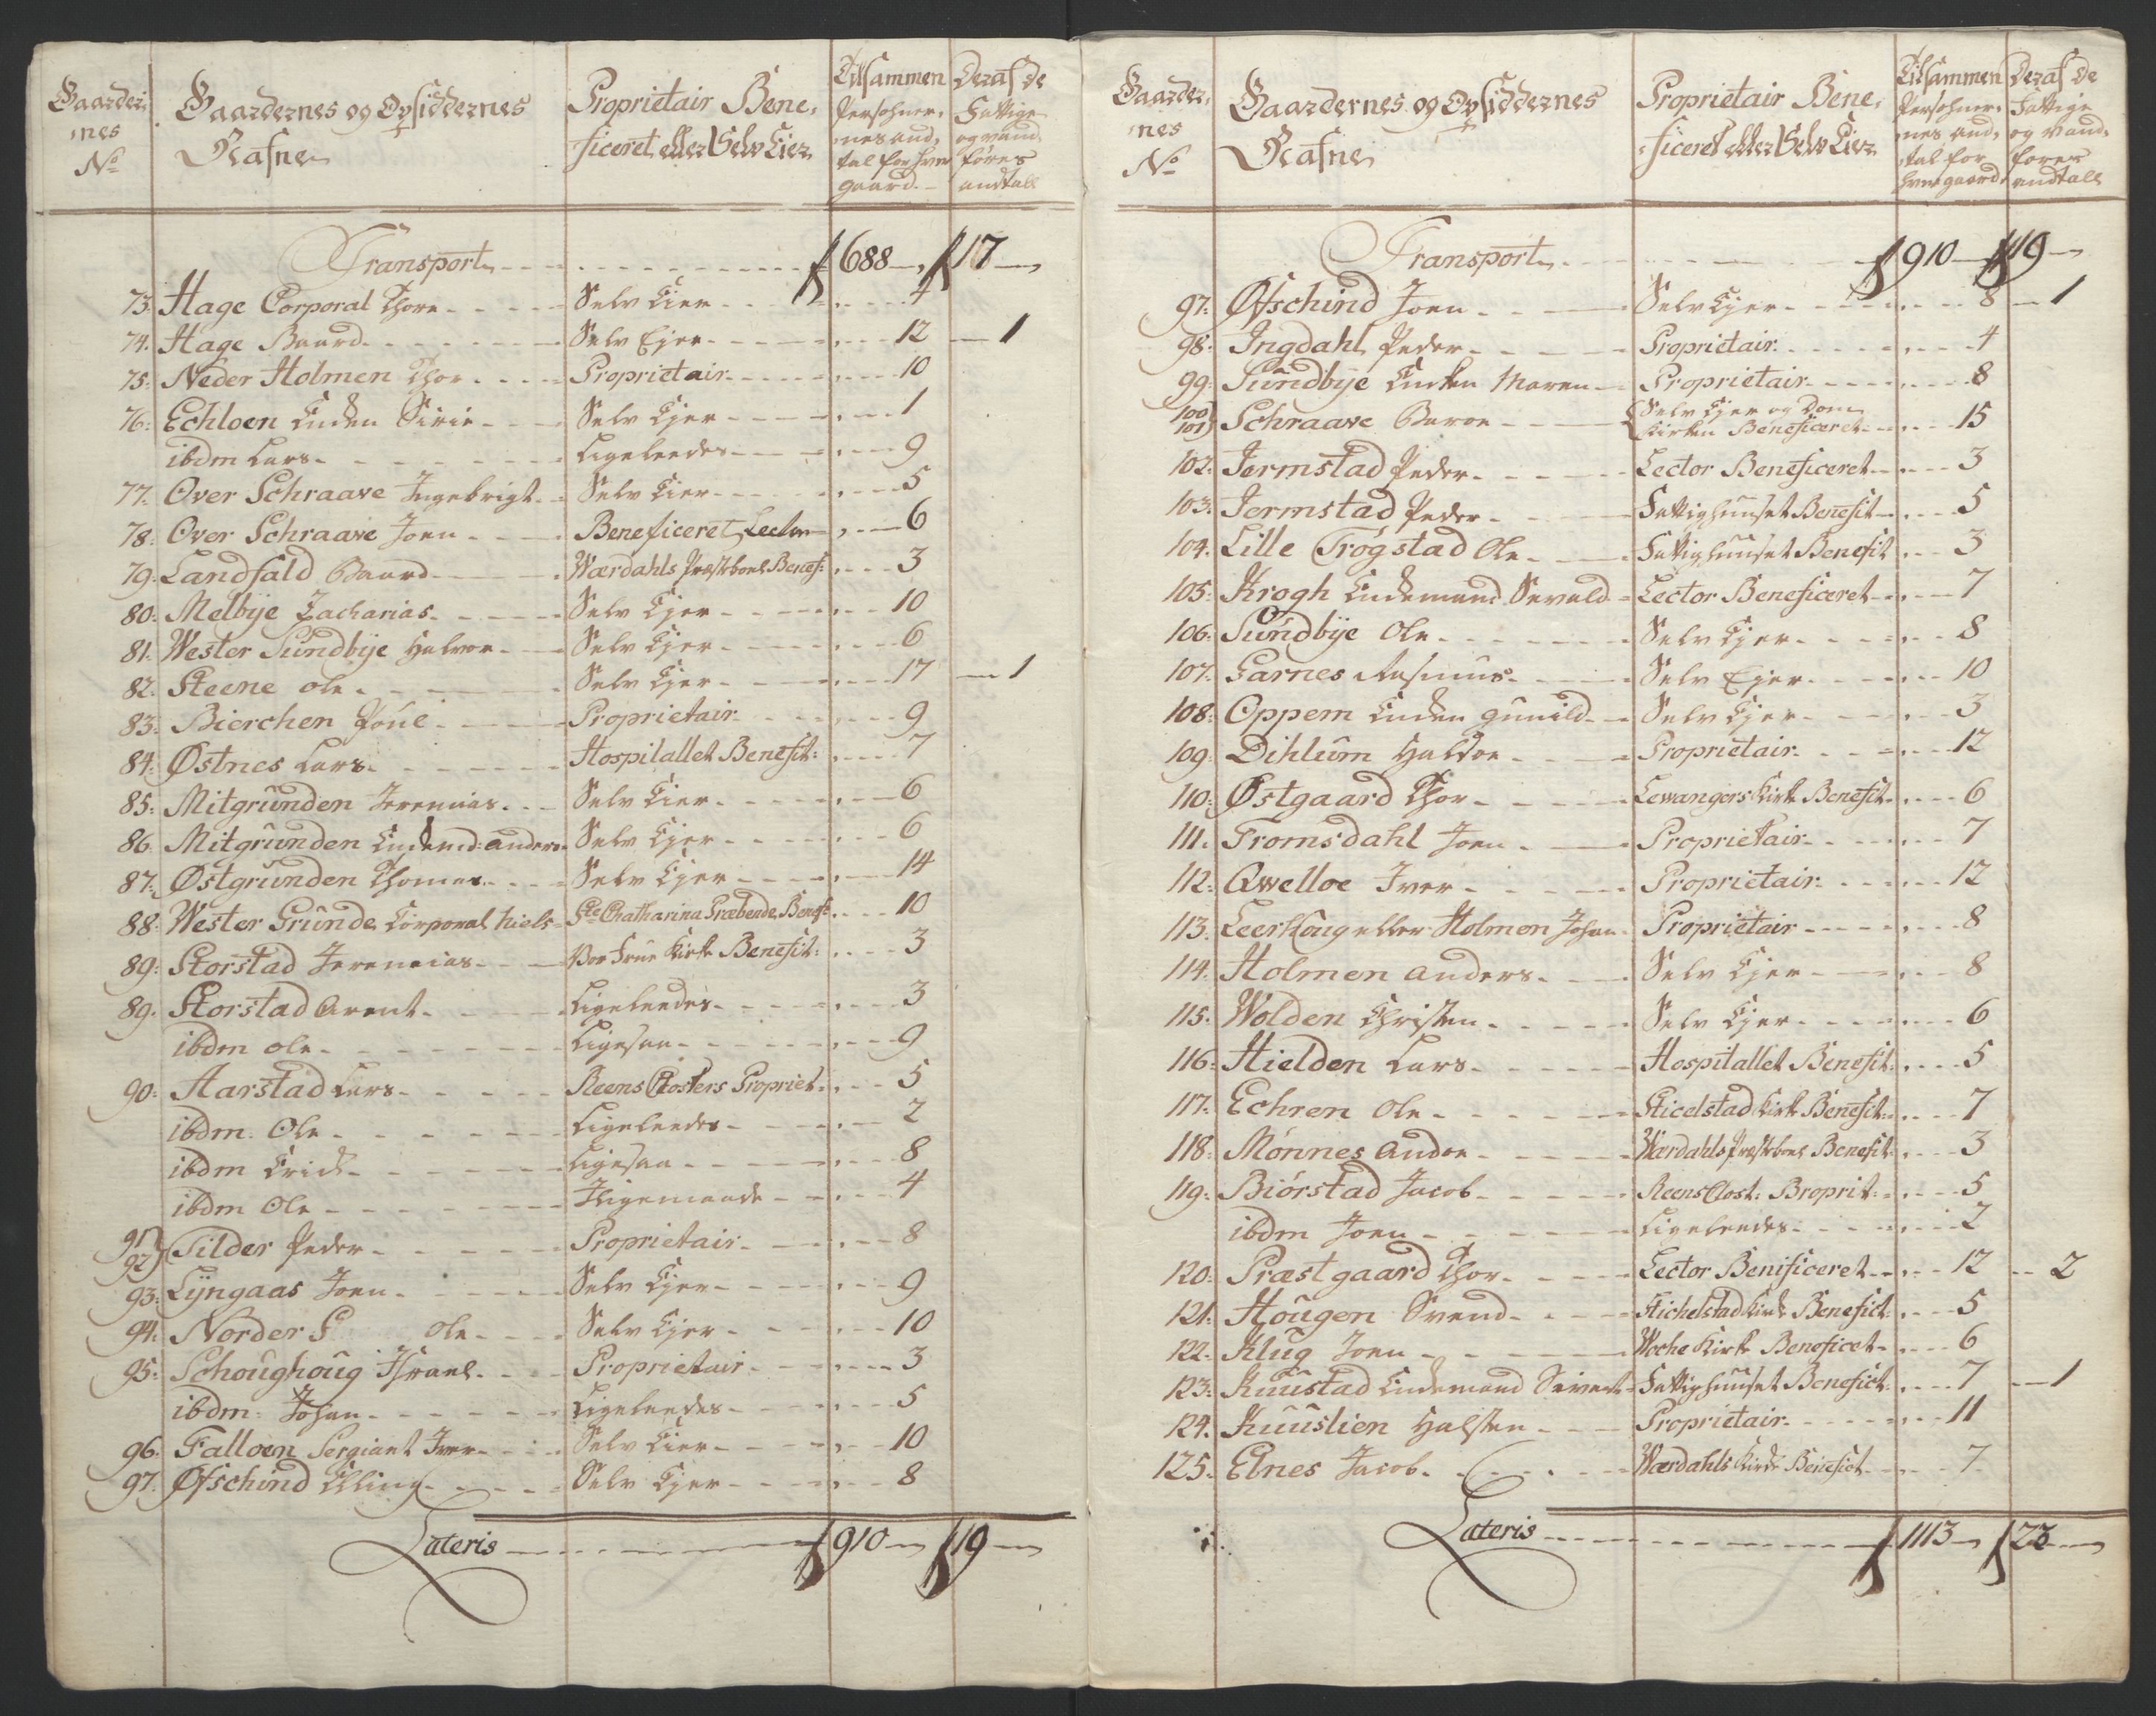 Gaarder,
nes
No
Gaardernes og Opsiddernes
Nafne
Proprietair Bene,
ficeret eller Selv Eier
Tilsammen
Persohner,
nes and,
tal for hver
gaard.
Deraf de
Fattige
og vand,
føres
andtall
Transport - - - 688 - 17
73. Hage Corporal Thore - - - Selv Eier - - - 4
74. Hage Baard - - - Selv Ejer - - - 12 - 1
75. Neder Holmen Thor - - - Proprietair - - - 10
76. Echloen Enken Sirie - - - Selv Ejer - - - 1
ibdm Lars - - - Ligeleedes - - - 9
77. Over Schraave Ingebrigt - - Selv Eier - - - 5
78. Over Schraave Joen - - - Beneficeret Lector - 6
79. Landfald Baard - - - Wærdahls Præstboel Benef: - - 3
80. Melbye Zacharias - - - Selv Ejer - - - 10
81. Wester Sundbye Halvor - - Selv Ejer - - - 6
82. Steene Ole - - - Selv Ejer - - - 17 - 1
83. Bierchen Poul - - - Proprietair - - - 9
84. Østnes Lars - - - Hospitallet Benefit: - - - 7
85. Mitgrunden Jeremias - - - Selv Eier - - - 6
86. Mitgrunden Enkemd: Anders - Selv Ejer - - - 6
87. Østgrunden Thomas - - - Selv Ejer - - - 14
88. Wester Grunde Corporal Niels - Ste Chatharina Præbende Benef: - - 10
89. Storstad Jeremias - - Vor Frue Kirke Benefit: - - 3
89. Storstad Arent - - - Ligeleedes - - - 3
ibdm Ole - - - Ligesaa - - - 9
90. Aarstad Lars - - - Reens Closters Propriet - - - 5
ibdm. Ole - - - Ligeleedes - - - 2
ibdm Erich - - - Ligesaa - - - 8
ibdm Ole - - - Iligemaade - - - 4
91
92) Tilder Peder - - - Proprietair - - - 8
93. Lyngaas Joen - - - Selv Ejer - - - 9
94. Norder Ole - - - Selv Ejer - - - 10
95. Schoughoug Israel - - - Proprietair - - - 3
ibdm: Johan - - - Ligeleedes - - - 5
96. Falloen Sergiant Iver - - - Selv Eier - - - 10
97. Øfschind Elling - - - Selv Ejer - - - 8
Lateris - - - 910 - 19
Gaarder,
nes
No
Gaardernes og Opsiddernes
Nafne
Proprietair Bene,
ficeret eller Selv Eier
Tilsammen
Persohner,
nes and,
tal for
hver gaard
Deraf de
Fattige
og vand,
føres
andtall
Transport - - - 910 - 19
97. Øfschind Joen - - - Selv Ejer - - - 8 - 1
98. Ingdahl Peder - - - Proprietair - - - 4
99. Sundbye Enken Maren - - Proprietair - - - 8
100
101) Schraave Baroe - - - Selv Ejer og Dom
Kirken Beneficeret - - - 15
102. Jermstad Peder - - - Lector Beneficeret - - - 3
103. Jermstad Peder - - - Fattighuuset Benefit - - - 5
104. Lille Trøgstad Ole - - - Fattighuuset Benefit - - 3
105. Krogh Enkemand Sevald - Lector Beneficeret - - - 7
106. Sundbye Ole - - - Selv Ejer - - - 8
107. Garnes Rasmus - - - Selv Ejer - - - 10
108. Oppem Enken Gunild - - Selv Ejer - - - 3
109. Dihlum Haldor - - - Proprietair - - - 12
110. Østgaard Thor - - - Lewangers Kirke Benefit - - - 6
111. Tromsdahl Joen - - - Proprietair - - - 7
112. Qwelloe Iver - - - Proprietair - - - 12
113. Leerhoug eller Holmen Johan - Proprietair - - - 8
114. Holmen Anders - - - Selv Ejer - - - 8
115. Wolden Christen - - - Selv Ejer - - - 6
116. Hielden Lars - - - Hospitallet Benefit: - - - 5
117. Echren Ole - - - Sticelstad Kirke Benefit: - - 7
118. Mønnes Andor - - - Wærdahls Præstboel Benefit: - - 3
119. Biørstad Jacob - - - Reens Clost: Broprit: - - - 5
ibdm Joen - - - Ligeleedes - - - 2
120. Præstgaard Thor - - - Lector Benificeret - - - 12 - - 2
121. Hougen Svend - - - Stichelstad Kirke Benefict: - - 5
122. Klug Joen - - - Woche Kirke Beneficet - - - 6
123. Kuustad Enkemand Sivert - Fattighuuset Benefict: - - 7 - 1
124. Kuuslien Halsten - - - Proprietair - - - 11
125. Elnes Jacob - - - Wærdahls Kirke Benefict - - - 7
Lateris - - - 1113 - 23